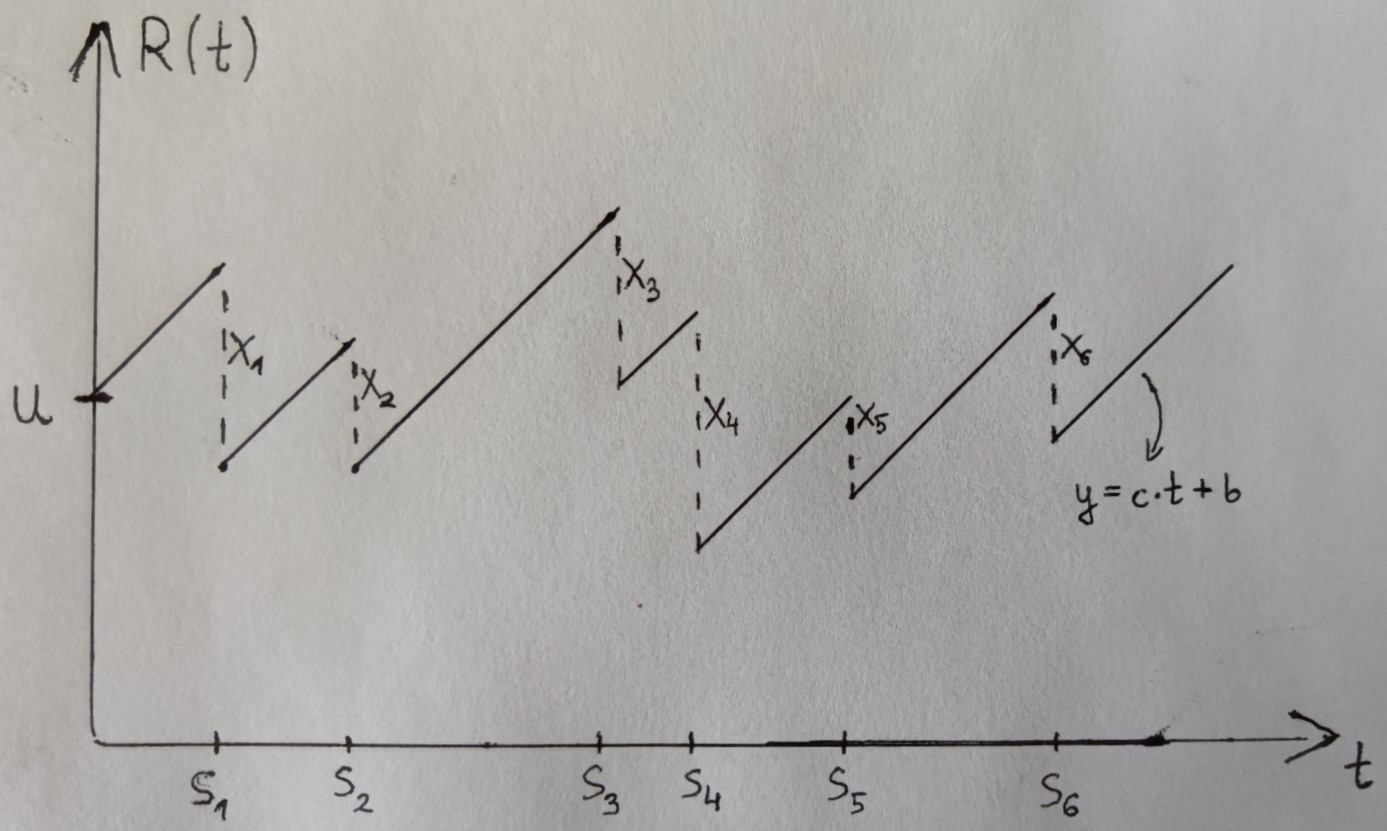 R(t)
X₁
X₂
X₃
X₄
X₅
X₆
u
y=c·t+b
S₁ S₂ S₃ S₄ S₅ S₆
t